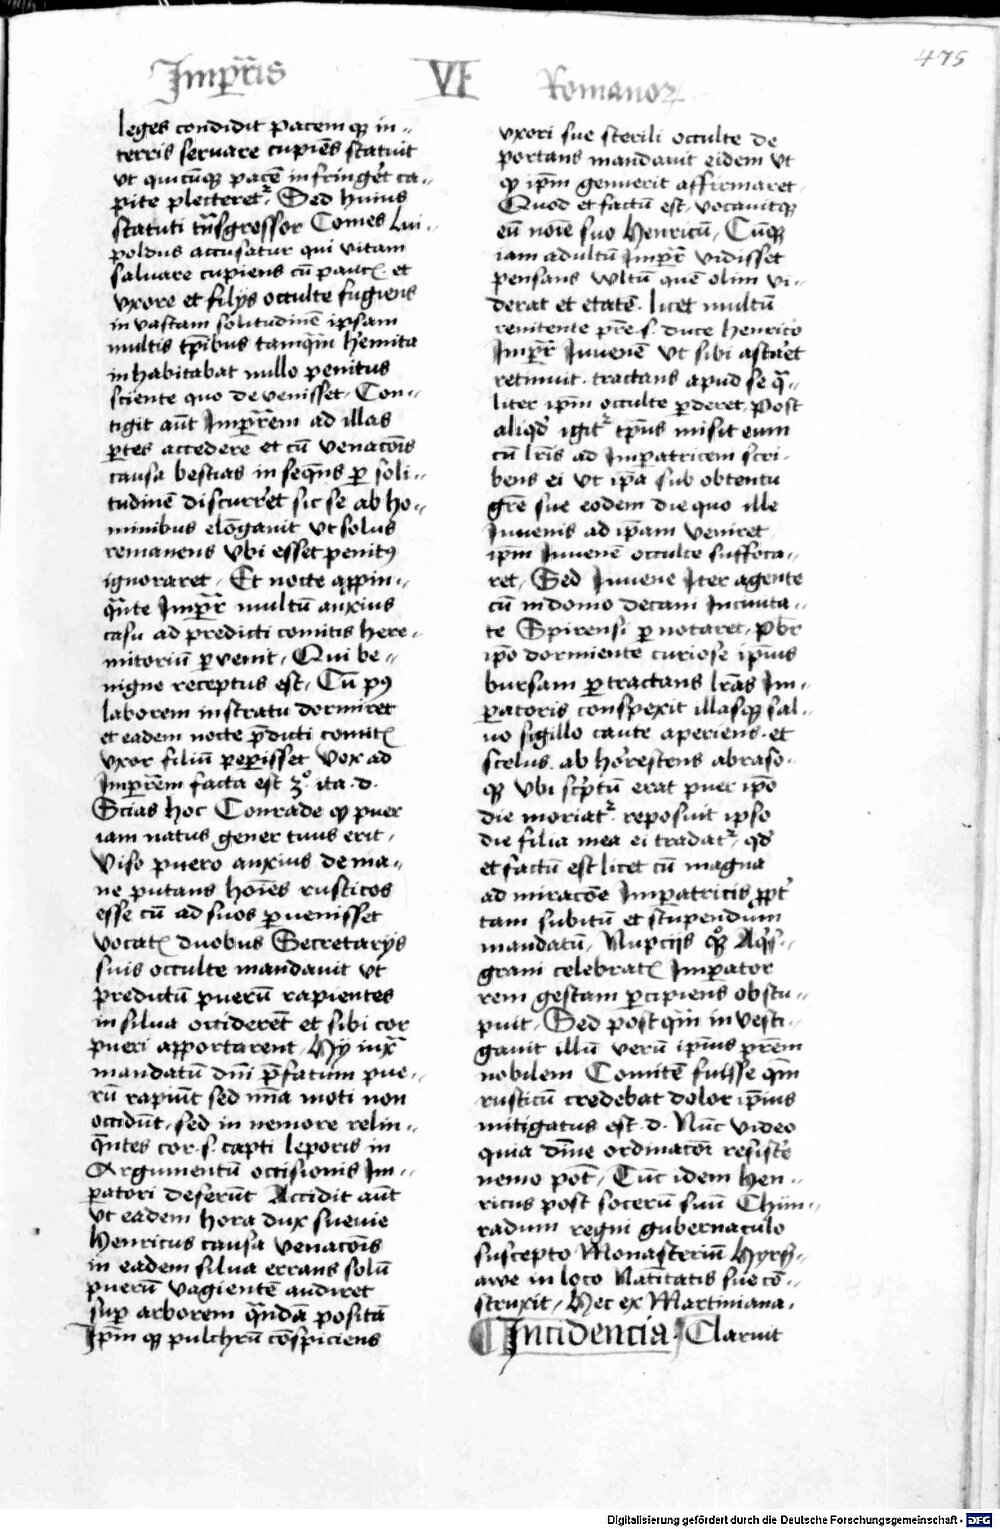 475
Imp̄r̄is VI Romanoꝝ
leges condidit pacem qꝫ in-
terris seruare cupiēs statuit
vt quicūqꝫ pacē infringēt ca-
pite plecteretr. Sed huius
statuti tn̄sgressor Comes Lui-
poldus accusatur qui vitam
saluare cupiens cū paucꝭ et
vxore et filijs occulte fugiens
in vastam solitudinē ipsam
multis tp̄ibus tamqm̄ hemita
inhabitabat nullo penitus
sciente quo deuenisset. Con-
tigit aūt Imp̄r̄em ad illas
ꝑtes accedere et cū venacōis
causa bestias inseqn̄s ꝑ soli-
tudinē discurrēt sic se ab ho-
minibus elōgauit vt solus
remanens vbi esset penitꝰ
ignoraret. Et nocte aꝓpin-
qn̄te Imp̄r̄ multū anxius
casu ad predicti comitis here-
mitoriū ꝑuenit. Qui be-
nigne receptus est. Cū pꝰ
laborem instratu dormiret
et eadem nocte p̄dicti comitꝭ
vxor filiū peperisset vox ad
Imp̄r̄em facta est 3º. ita .d.
Scias hoc Conrade qꝫ puer
iam natus gener tuus erit.
Viso puero anxius de ma-
ne putans hoīes rusticos
esse cū ad suos ꝑuenisset
vocatꝭ duobus Secretarijs
suis occulte mandauit vt
predictū puerū rapientes
in silua occiderēt et sibi cor
pueri apportarent. Hy iuxª
mandatū dnī p̄fatum pue-
rū rapiūt sed mīa moti non
occidūt. sed in nemore relin-
qn̄tes cor .s. capti leporis in
Argumentū occisionis Im-
ꝑatori deferūt Accidit aūt
vt eadem hora dux sueuie
Henricus causa venacōis
in eadem silua errans solū
puerū vagientē audiret
suꝑ arborem qn̄dā positū
Ip̄m qꝫ pulchrū cōspiciens
vxori sue sterili occulte de
portans mandauit eidem vt
qꝫ ip̄m genuerit affirmaret.
Quod et factū est. vocauitqꝫ
eū noīe suo Henricū. Cūqꝫ
iam adultū Imp̄r̄ vidisset
pensans vultū quē olim vi-
derat et etatē. licet multū
renitente pr̄e .s. duce henrico
Imp̄r̄ Iuuenē vt sibi astaret
retinuit. tractans apud se qª-
liter ip̄m occulte ꝑderet. Post
aliqd̄ igitr tp̄us misit eum
cū lr̄is ad Imperatricem scri-
bens ei vt ip̄a sub obtentu
grē sue eodem die quo ille
Iuuenis ad ip̄am veniret
ip̄m Iuuenē occulte suffoca-
ret. Sed Iuuene Iter agente
cū indomo decani Inciuita-
te Spirensi ꝑnotaret. pb̄r
ip̄o dormiente curiose ip̄ius
bursam ꝑtractans lr̄as Im-
ꝑatoris conspexit illasqꝫ sal-
uo sigillo caute aperiens. et
scelus. ab horrescens abraso-
qꝫ vbi scptū erat puer ip̄o
die moriatr. reposuit ipso
die filia mea ei tradatr. qd̄
et factū est licet cū magna
ad miracōe Imperatricis ꝓpt
tam subitū et stupendum
mandatū. Nupcijs qꝫ Aqs-
grani celebratꝭ Imperator
rem gestam ꝑcipiens obstu-
puit. Sed postqm̄ investi-
gauit illū verū ip̄ius pr̄em
nobilem Comitē fuisse qm̄
rusticū credebat dolor ip̄ius
mitigatus est .d. Nūc video
quia diuīe ordinatōi resistē
nemo pōt. Tūc idem Hen-
ricus post socerū suū Chun-
radum regni gubernaculo
suscepto Monasteriū Hyrs-
awe in loco Natītatis sue cō-
struxit. Hec ex Martiniana.
¶ Incidencia. Claruit
Digitalisierung gefördert durch die Deutsche Forschungsgemeinschaft - DFG